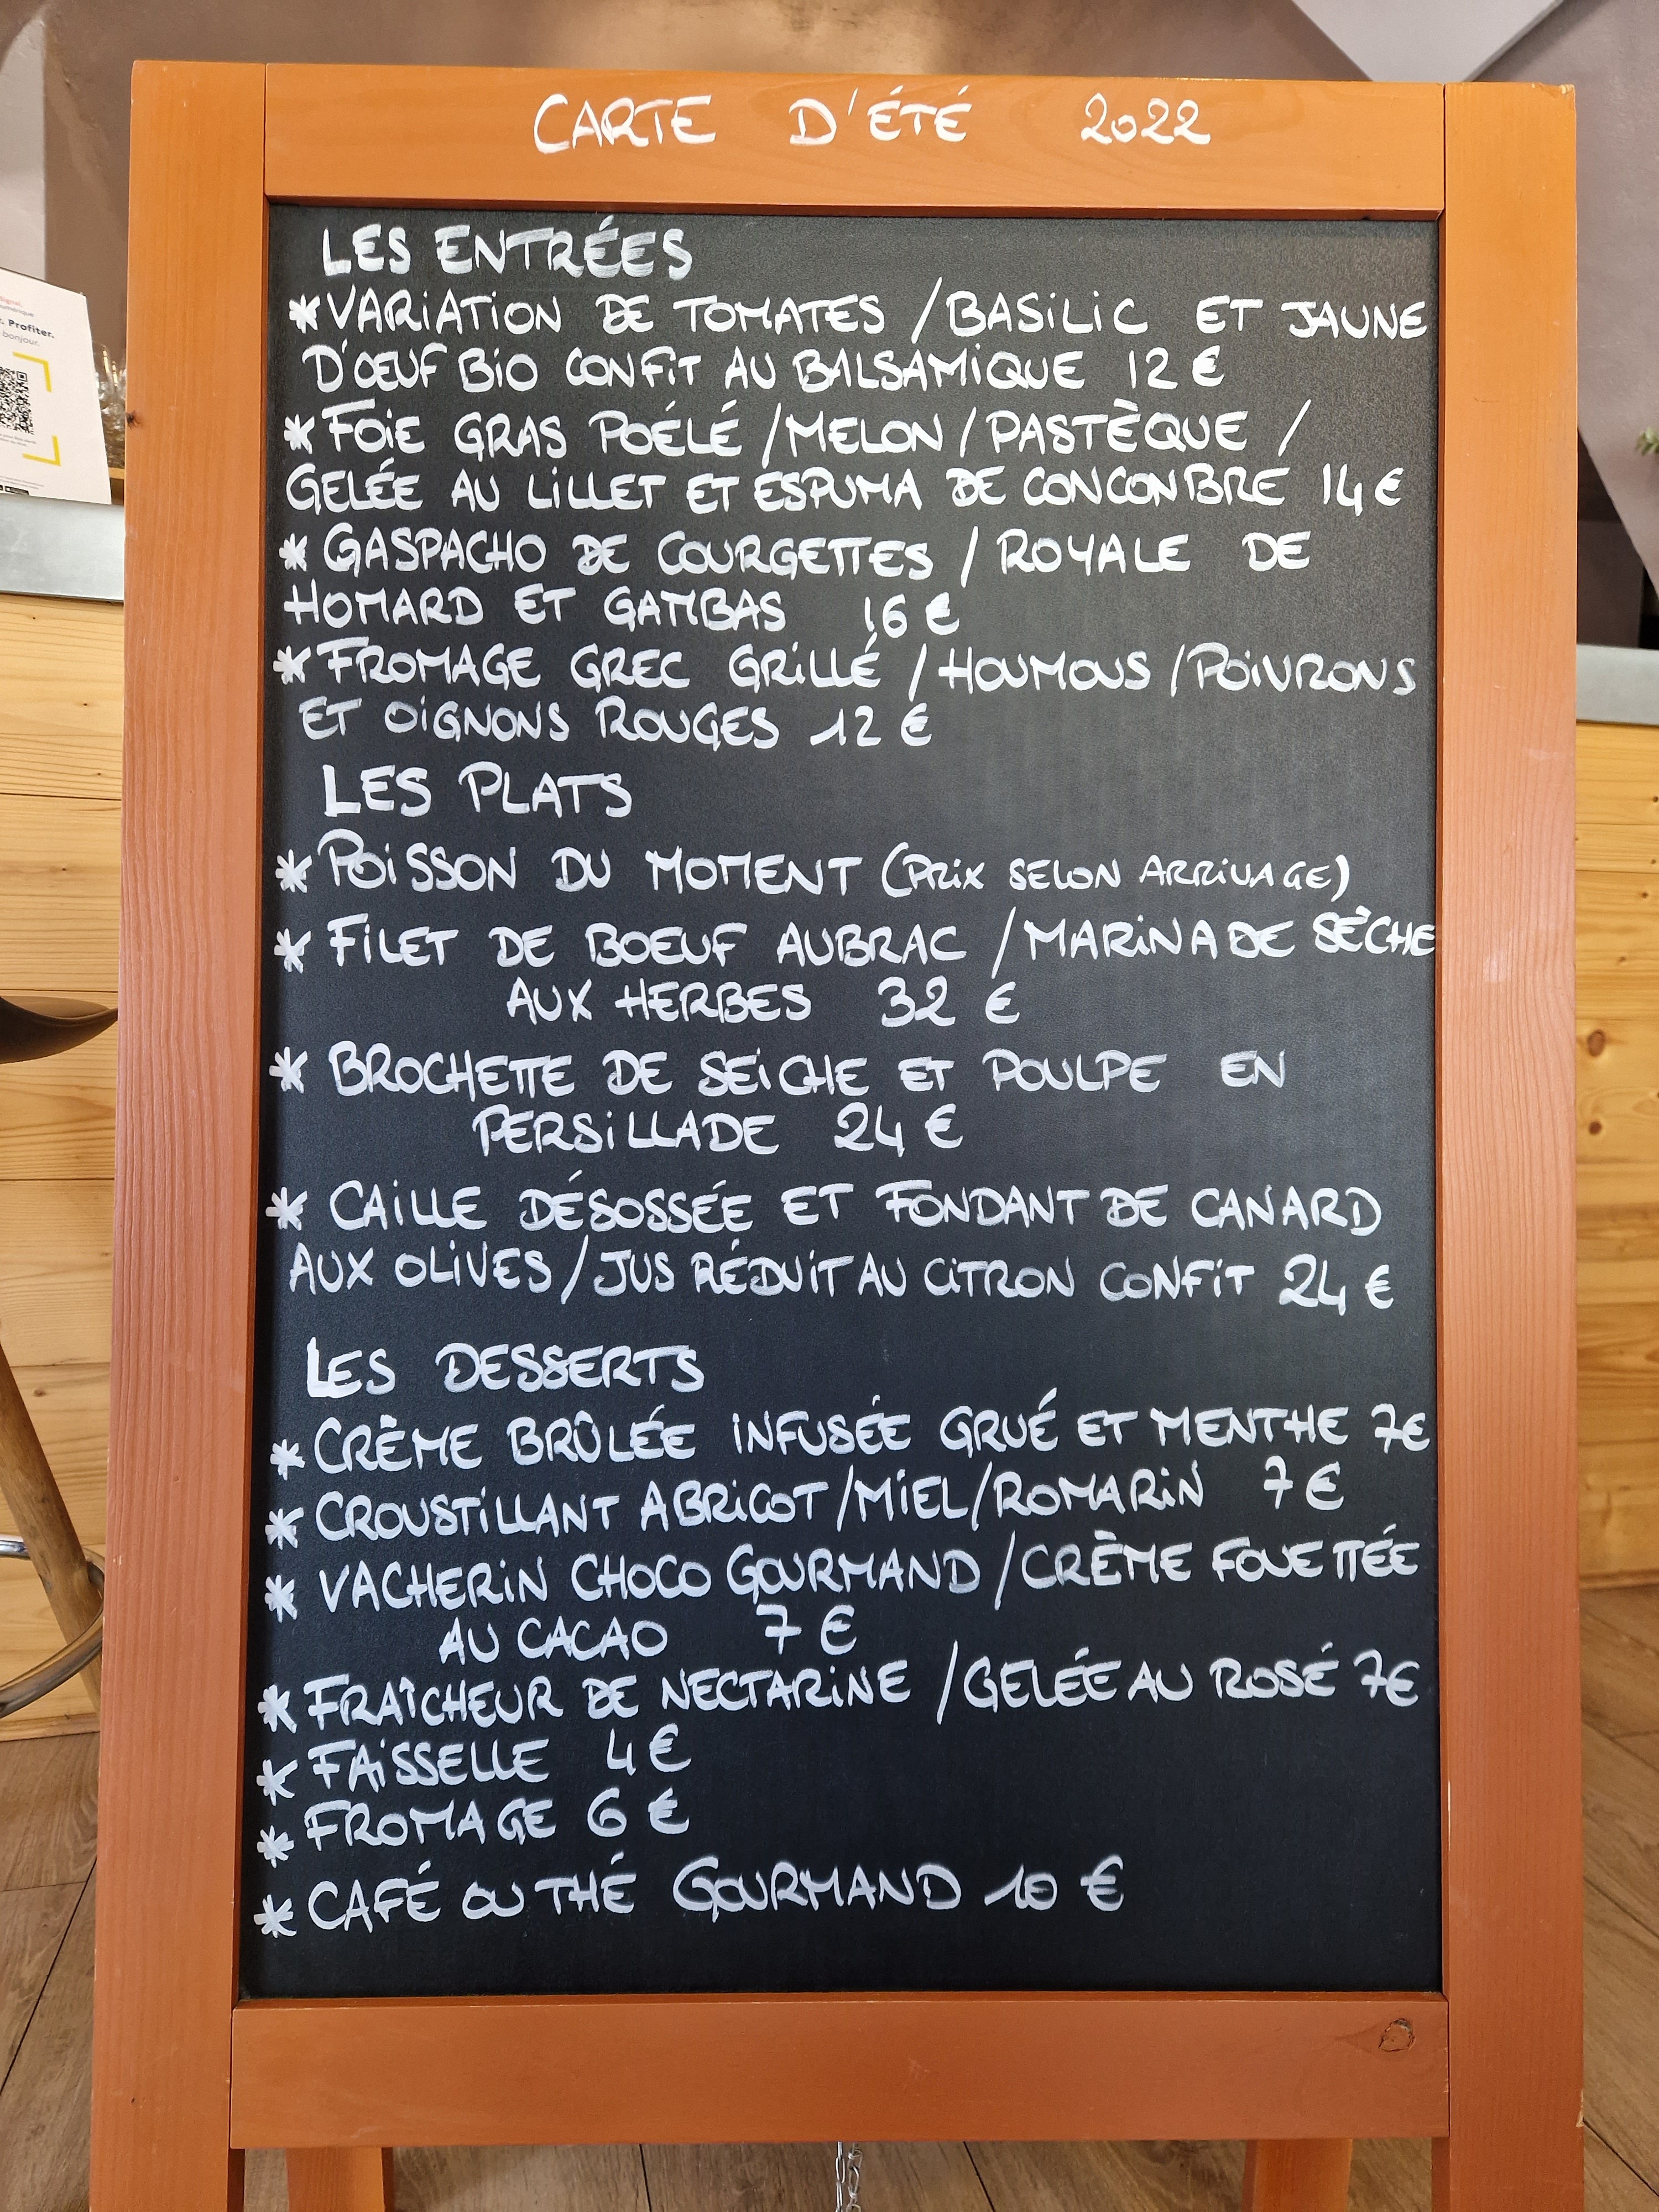 CARTE D'ÉTÉ 2022
LES ENTRÉES
*VARIATION DE TOMATES / BASILIC ET JAUNE
D'ŒUF BIO CONFIT AU BALSAMIQUE 12 €
*FOIE GRAS POÉLÉ / MELON / PASTÈQUE /
GELÉE AU LILLET ET ESPUMA DE CONCONBRE 14 €
* GASPACHO DE COURGETTES / ROYALE DE
HOMARD ET GAMBAS 16 €
*FROMAGE GREC GRILLÉ / HOUMOUS / POIVRONS
ET OIGNONS ROUGES 12 €
LES PLATS
*POISSON DU MOMENT (PRIX SELON ARRIVAGE)
* FILET DE BOEUF AUBRAC / MARINADE SÈCHE
AUX HERBES 32 €
* BROCHETTE DE SEICHE ET POULPE EN
PERSILLADE 24 €
* CAILLE DÉSOSSÉE ET FONDANT DE CANARD
AUX OLIVES / JUS RÉDUIT AU CITRON CONFIT 24 €
LES DESSERTS
*CRÈME BRÛLÉE INFUSÉE GRUÉ ET MENTHE 7€
* CROUSTILLANT ABRICOT / MIEL / ROMARIN 7 €
* VACHERIN CHOCO GOURMAND / CRÈME FOUETTÉE
AU CACAO 7 €
*FRAÎCHEUR DE NECTARINE / GELÉE AU ROSÉ 7€
* FAISSELLE 4 €
* FROMAGE 6 €
* CAFÉ OU THÉ GOURMAND 10 €
Profiter.
bonjour.